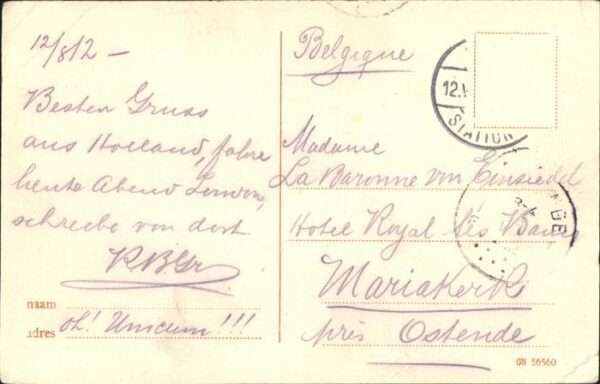 12/8/12 –
Besten Gruss
aus Holland, fahre
heute Abend
schreibe von dort.
naam
adres oh! Unicum!!!
Belgique
12.
STATION
Madame
La Baronne von Einsiedel
Hotel Royal des Bains
Mariakerke
près Ostende
GB 56560